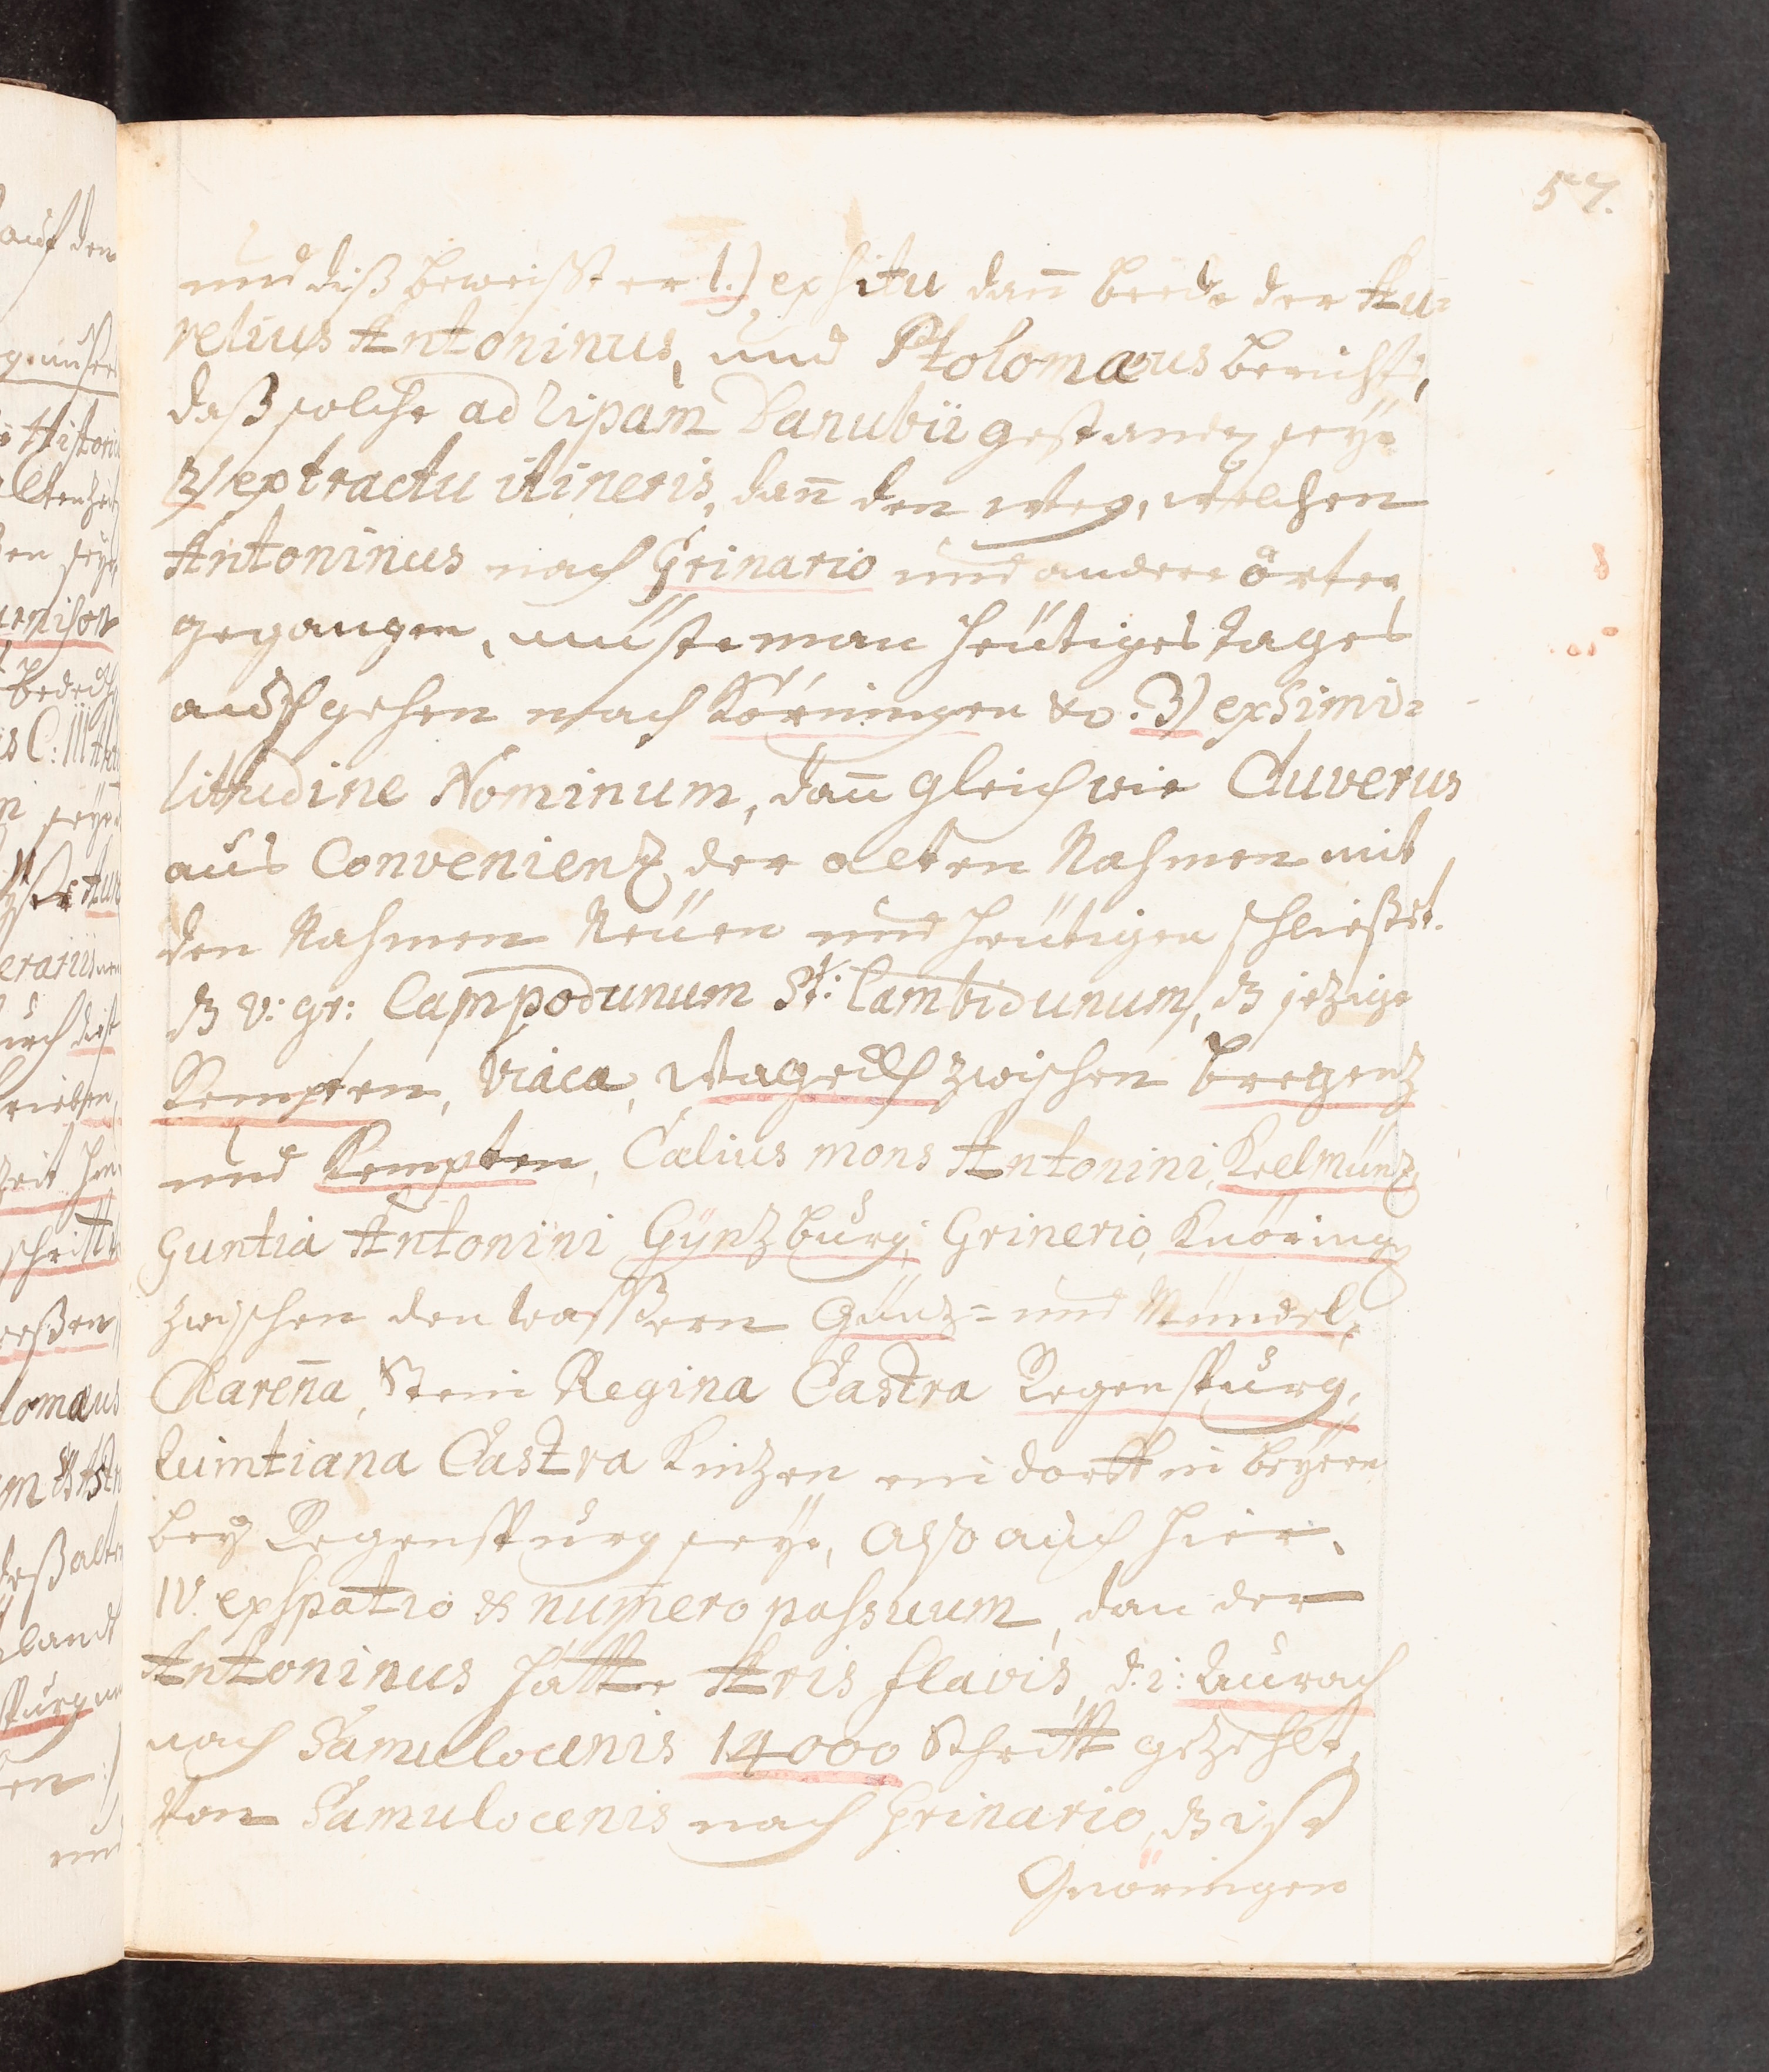 57.
und diß beweißt er 1.) ex situ dan̄ beede der Au=
relius Antoninus, und Ptolomæus bericht,
daß solche ad ripam Danubii gestanden seye
2) ex tractu itineris, dan̄ den Weg, welchen
Antoninus nach Grinario und andere örter
gegangen, müste man heütiges tages
auch gehen nach Köringen &c. 3) ex Simi=
litudine Nominum, dan̄ gleich wie Cluverus
aus Convenienz der alten Nahmen mit
den Nahmen Neüen und heütigen schließet.
dz v: gr: Campodunum St: Cambidunum, dz jezige
Kempten, Viaca, Wageck zwischen Bregenz
und Kempten, Cælius mons Antonini, Kelmünz,
Guntia Antonini Gÿnzburg, Grinerio, Knöring
zwischen den wassern Günz= und Mündel,
Claren̄a, Stein Regina Castra Regenspurg,
Quintiana Castra Kinzen ein dorff in Beyern
bey Regenspurg seye, also auch hier.
IV. ex spatio & numero passuum, dan der
Antoninus hätte Aris flavis, d. i: Aurach
nach Samulocenis 14000 Schritt gezehlt,
Von Samulocenis nach Grinario, dz ist
Gnöringen
auf den
Histori
seye
rnison
C: III
durch
rieben,
Zeit
schritt
lomæus
deß alten
landt
spurg
und